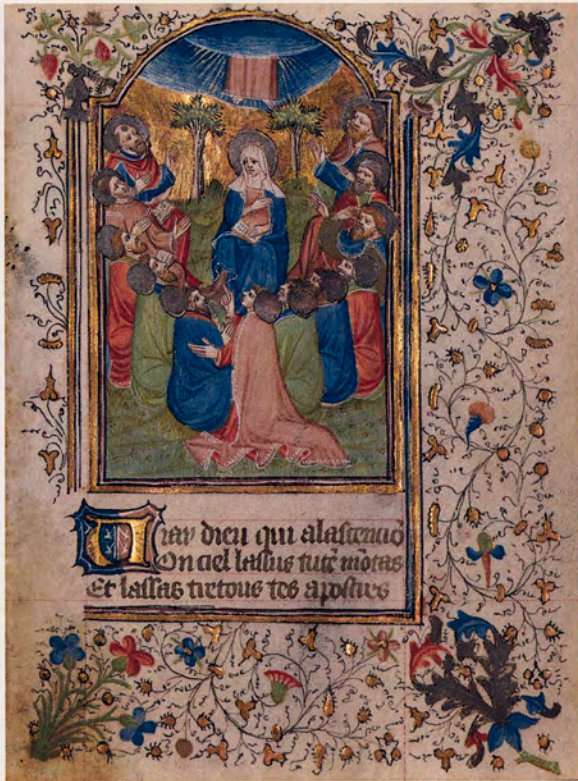 Vray dieu qui alastenciõ
On ciel lassus mõtas
Et lassas tretous tes apostres